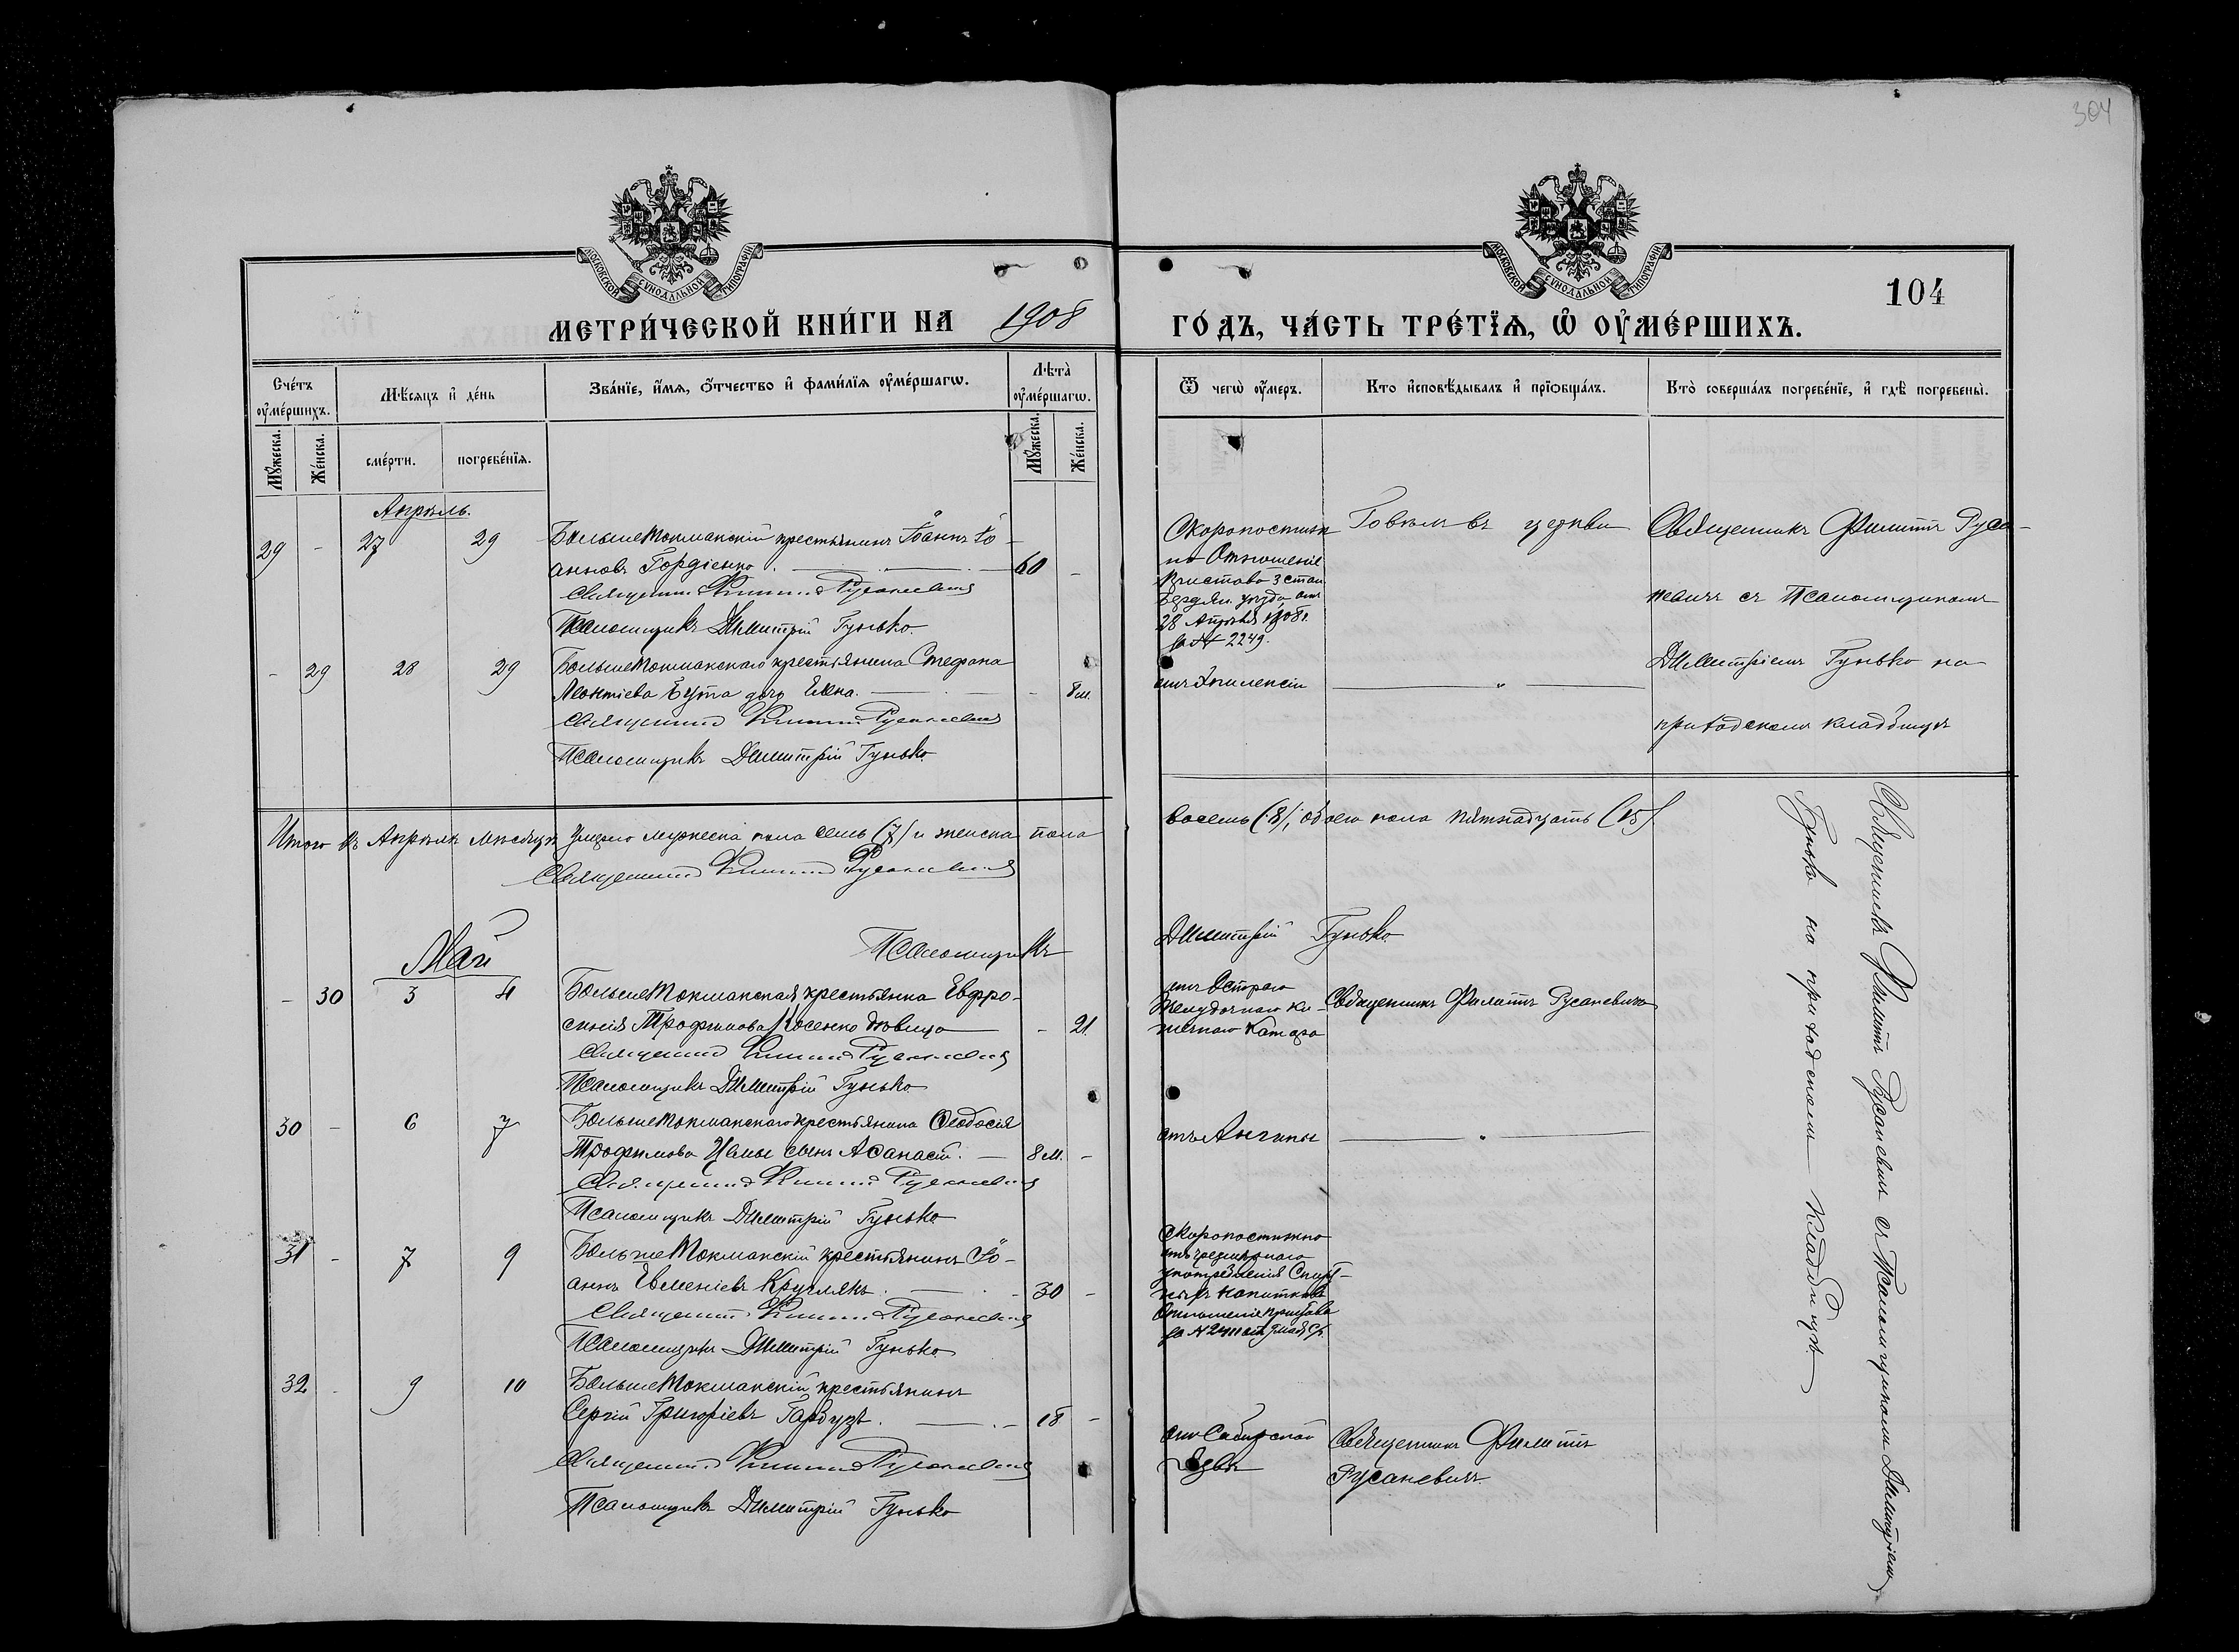 304
МОСКОВСКОЙ СУНОДАЛЬНОЙ ТИПОГРАФІИ
МОСКОВСКОЙ СУНОДАЛЬНОЙ ТИПОГРАФІИ
104
МЕТРИ́ЧЕСКОЙ КНИ́ГИ НА 1908 ГО́ДЪ, ЧА́СТЬ ТРЕ́ТЇѦ, Ѡ҆ ОУ҆МЕ́РШИХЪ.
Сче́тъ оу҆ме́ршихъ.
Мꙋ́жеска.
Же́нска.
Мѣ́сяцъ и҆ де́нь
сме́рти.
погребе́нїя.
Зва́нїе, и҆́мя, ѻ҆́тчество и҆ фами́лїя оу҆ме́ршагѡ.
Лѣта̀ оу҆ме́ршагѡ.
Мꙋ́жеска.
Же́нска.
Ѿ чегѡ̀ оу҆́меръ.
Кто̀ и҆сповѣ́дывалъ и҆ прїѡбща́лъ.
Кто̀ соверша́лъ погребе́нїе, и҆ гдѣ̀ погребены̀.
Апрѣль.
29 - 27 29 БольшеТокмакскій крестьянинъ Іоаннъ Іо-
анновъ Гордіенко. 60 -
Священникъ Филиппъ Русаневичъ
Псаломщикъ Димитрій Гунько.
Скоропостижно
Отношеніе
Пристава 3 стан.
Бердян. уѣзда отъ
28 Апрѣля 1908 г.
за № 2249.
Говѣлъ въ церкви
Священникъ Филиппъ Руса-
невичъ съ Псаломщикомъ
Димитріемъ Гунько на
приходскомъ кладбищѣ
- 29 28 29 БольшеТокмакскаго крестьянина Стефана
Леонтіева Бута дочь Елена. - 8 м.
Священникъ Филиппъ Русаневичъ
Псаломщикъ Димитрій Гунько.
отъ Эпилепсіи
Итого въ Апрѣлѣ мѣсяцѣ умерло мужеска пола семь (7) и женска пола
восемь (8), обоего пола пятнадцать (15).
Священникъ Филиппъ Русаневичъ
Псаломщикъ Димитрій Гунько.
Май
- 30 3 4 БольшеТокмакская крестьянка Евфро-
синія Трофимова Косенко дѣвица - 21
Священникъ Филиппъ Русаневичъ
Псаломщикъ Димитрій Гунько
отъ Остраго
Желудочнаго Ки-
шечнаго Катара
Священникъ Филиппъ Русаневичъ
30 - 6 7 БольшеТокмакскаго крестьянина Ѳеодосія
Трофимова сынъ Аѳанасій. 8 м. -
Священникъ Филиппъ Русаневичъ
Псаломщикъ Димитрій Гунько
отъ Ангины
31 - 7 9 БольшеТокмакскій крестьянинъ Іо-
аннъ Евменіевъ Кругляк. 30 -
Священникъ Филиппъ Русаневичъ
Псаломщикъ Димитрій Гунько
Скоропостижно
отъ чрезмѣрнаго
употребленія Спирт-
ныхъ напитковъ
Отношеніе Пристава
32 - 9 10 БольшеТокмакскій крестьянинъ
Сергій Григоріевъ Гарбузъ. 18 -
Священникъ Филиппъ Русаневичъ
Псаломщикъ Димитрій Гунько
отъ Сибирской
Язвы
Священникъ Филиппъ
Русаневичъ.
Священникъ Филиппъ Русаневичъ съ Псаломщикомъ Димитріемъ
Гунько на приходскомъ кладбищѣ.